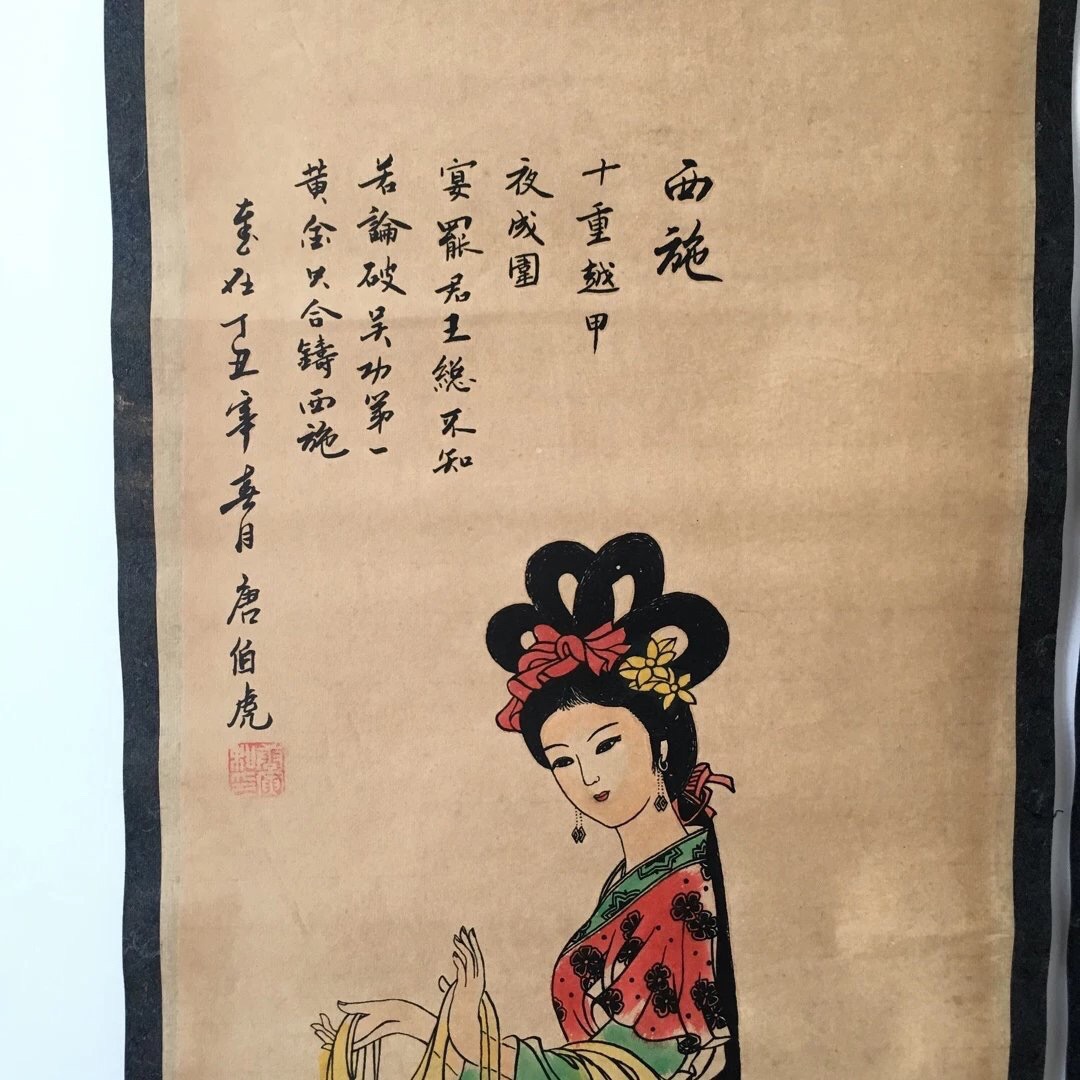 西施
十重越甲
夜成圍
宴罷君王總不知
若論破吴功第一
黄金只合鑄西施
丁丑年春月唐伯虎